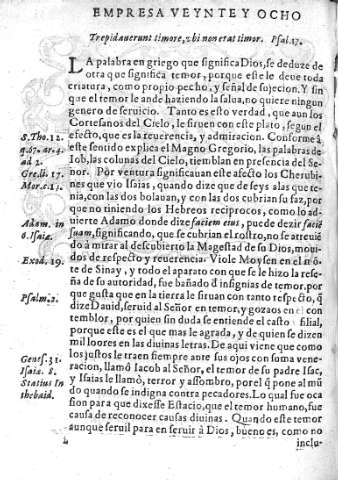 EMPRESA VEYNTE Y OCHO
Trepidauerunt timore, vbi non erat timor. Psal. 17.
LA palabra en griego que significa Dios, se deduze de
otra que significa temor, porque este le deue toda
criatura, como propio pecho, y señal de sujecion. Y sin
que el temor le ande haziendo la salua, no quiere ningun
genero de seruicio. Tanto es esto verdad, que aun los
Cortesanos del Cielo, le siruen con este plato, segun el
efecto, que es la reuerencia, y admiracion. Conforme à
este sentido explica el Magno Gregorio, las palabras de
Iob, las colunas del Cielo, tiemblan en presencia del Se-
ñor. Por ventura significauan este afecto los Cherubi-
nes que vio Isaias, quando dize que de seys alas que te-
nia, con las dos bolauan, y con las dos cubrian su faz, por
que no tiniendo los Hebreos reciprocos, como lo ad-
uierte Adamo donde dize faciem eius, puede dezir faciē
suam, significando, que se cubrian el rostro, no se atreuiē
do à mirar al descubierto la Magestad de su Dios, moui-
dos de respecto y reuerencia. Viole Moysen en el mō
te de Sinay, y todo el apparato con que se le hizo la rese-
ña de su autoridad, fue bañado d̄ insignias de temor, por
que gusta que en la tierra le siruan con tanto respecto, q̄
dize Dauid, seruid al Señor en temor, y gozaos en el con
temblor, y por quien sin duda se entiende el casto filial,
porque este es el que mas le agrada, y de quien se dizen
mil loores en las diuinas letras. De aqui viene que como
los justos le traen siempre ante sus ojos con soma vene-
racion, llamó Iacob al Señor, el temor de su padre Isac,
y Isaias le llamò, terror y assombro, porel q̄ pone al mū
do quando se indigna contra pecadores. Lo qual fue oca
sion para que dixesse Estacio, que el temor humano, fue
causa de reconocer causas diuinas. Quando este temor
aunque seruil para en seruir à Dios, bueno es, como no
inclu-
S. Tho. 12.
q. 67. ar. 4.
ad 2.
Gre. li. 17.
Mor. c. 17.
Adam. in
6. Isaiæ.
Exod. 19.
Psalm. 2.
Genes. 31.
Isaiæ. 8.
Statius in
thebaid.